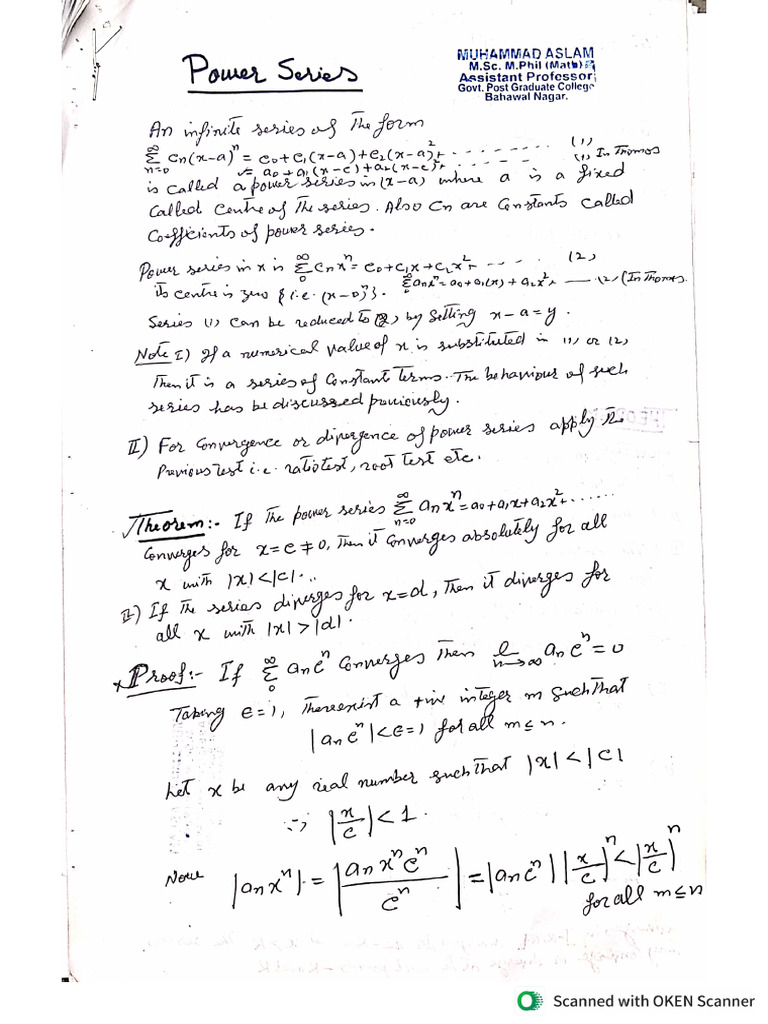 Power Series
MUHAMMAD ASLAM
M.Sc. M.Phil (Math)
Assistant Professor
Govt. Post Graduate College
Bahawal Nagar.
An infinite series of The form
∞Σn=0 Cn(x-a)^n = c0+c1(x-a)+c2(x-a)^2+ - - - - - - - (1)
= a0+a1(x-c)+a2(x-c)^2+ - - - - - - (1) In Thomos
is called a power series in (x-a) where a is a fixed
called centre of The series. Also Cn are Constants called
Coefficients of power series.
Power series in x is ∞Σ0 Cnx^n = c0+c1x+c2x^2+ - - - - - (2)
its centre is zero {i.e. (x-0)^n}. ∞Σ0 anx^n = a0+a1(x)+a2x^2+ - - - (2) (In Thomos.
Series (1) can be reduced to (2) by setting x-a=y.
Note I) If a numerical value of x is substituted in (1) or (2)
Then it is a series of Constant terms. The behaviour of such
series has be discussed previously.
II) For Convergence or divergence of power series apply The
Previous test i.e. ratio test, root test etc.
Theorem:- If The power series ∞Σn=0 anx^n = a0+a1x+a2x^2+ - - - - - -
Converges for x=c≠0, Then it Converges absolutely for all
x with |x|<|c|...
II) If The series diverges for x=d, Then it diverges for
all x with |x|>|d|.
Proof:- If ∞Σ0 anc^n Converges Then l n→∞ anc^n = 0
Taking ϵ=1, There exist a +ive integer m such That
|anc^n|<ϵ=1 for all m≤n.
Let x be any real number such That |x|<|c|
∴ |x/c|<1.
Now |anx^n| = |anx^nc^n/c^n| = |anc^n||x/c|^n < |x/c|^n
for all m≤n
Scanned with OKEN Scanner